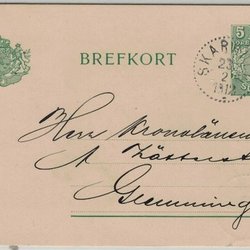 BREFKORT
5
SKAR
23
2
1912
Herr Kronolänsm
A. Zätterst
Gremming